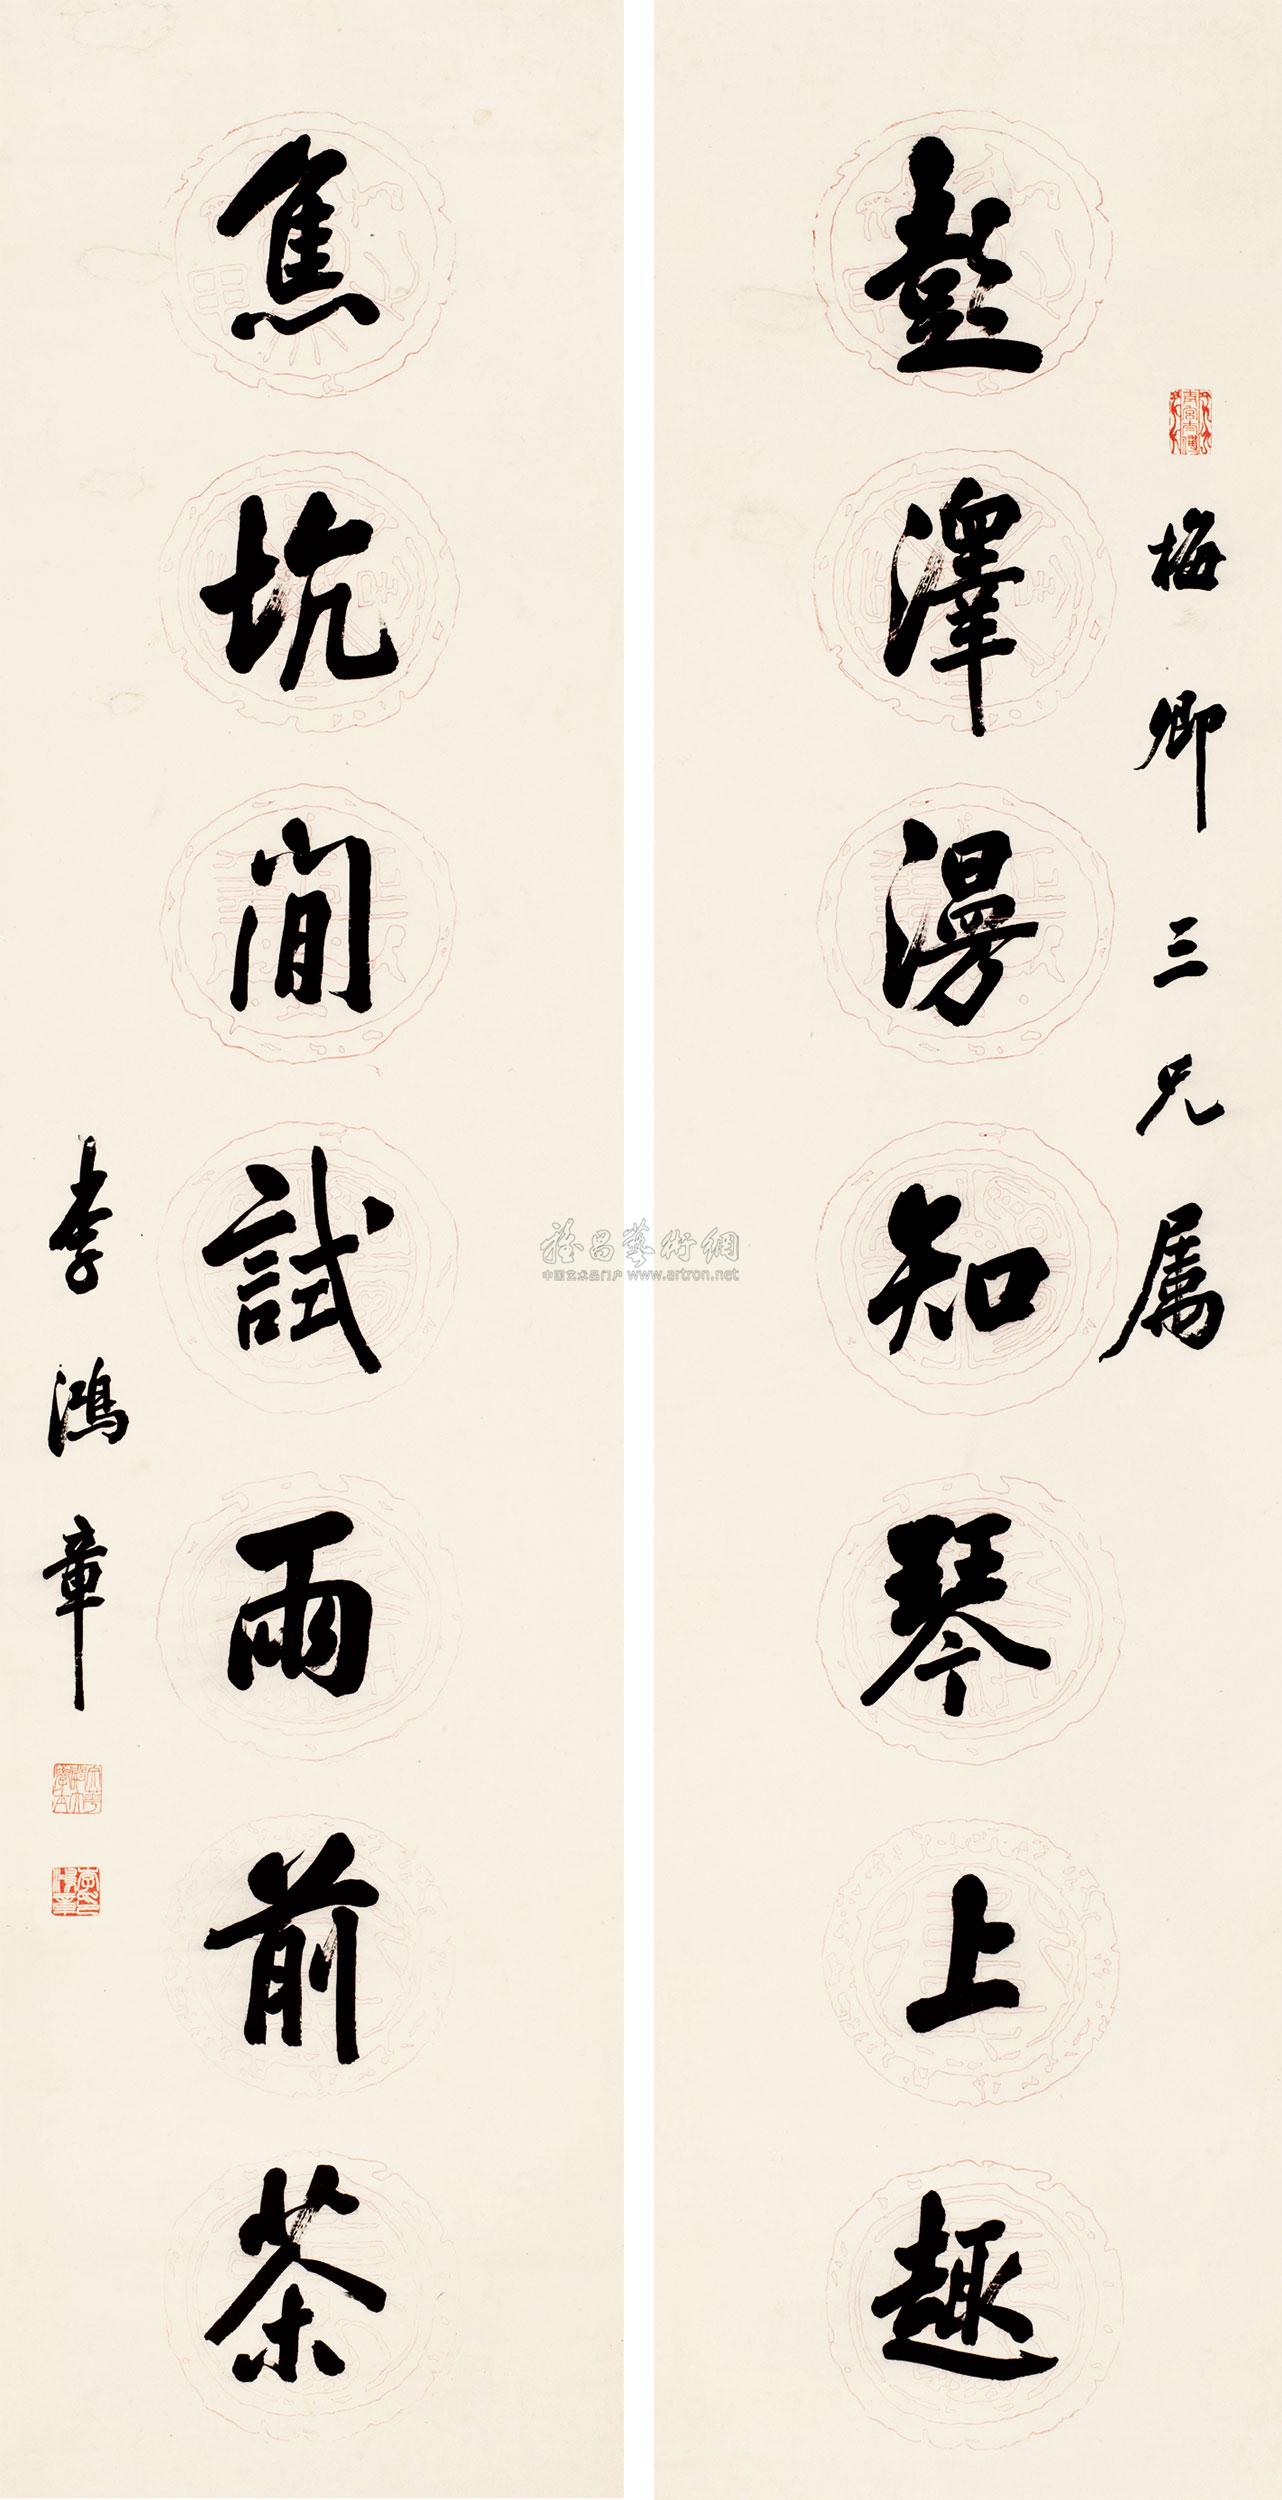 梅卿三兄属
彭澤漫知琴上趣
焦坑閒試雨前茶
李鴻章
雅昌藝術網
中国艺术品门户 www.artron.net